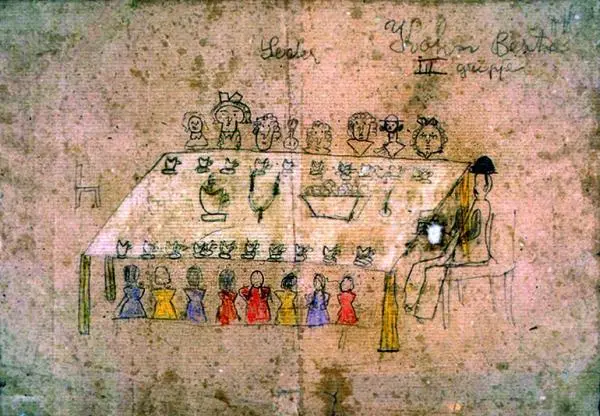 Seder
Kohn Berta
III gruppe